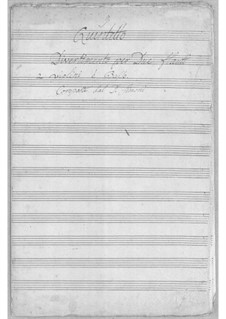 Quintetto
Divertimento per Due Flauti
2 Violini e Basso
Composto dal